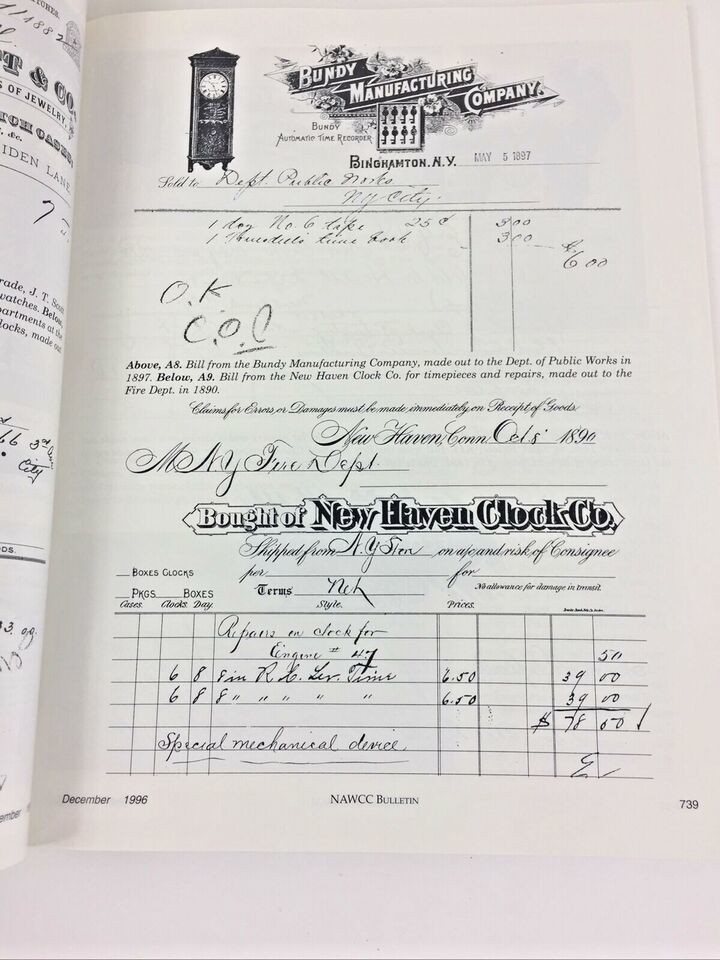 11188
T & CO.
S OF JEWELRY,
TCH CASES
&c.
AIDEN LANE
rade, J. T. Scott
watches. Below,
partments at the
locks, made out
66 3rd
City
ODS.
3.
ember
BUNDY
MANUFACTURING
COMPANY.
BUNDY
AUTOMATIC TIME RECORDER
BINGHAMTON. N.Y. MAY 5 1897
Sold to Dept. Public Works
NY City.
1 doz No. 6 tape 25¢ 3 00
1 time book 3 00
6 00
O.K
C.O.
Above, A8. Bill from the Bundy Manufacturing Company, made out to the Dept. of Public Works in
1897. Below, A9. Bill from the New Haven Clock Co. for timepieces and repairs, made out to the
Fire Dept. in 1890.
Claims for Errors, or Damages must be made immediately, on Receipt of Goods.
New Haven, Conn. Oct 8 1890
M NY Fire Dept.
Bought of New Haven Clock Co.
Shipped from N.Y Store on a/c and risk of Consignee
BOXES CLOCKS per for
PKGS BOXES Terms Net No allowance for damage in transit.
Cases. Clocks Day. Style. Prices.
Repairs on clock for
Engine # 47 50
6 8 8 in R. C. Lev. Time 6.50 39 00
6 8 8 " " " " " 6.50 39 00
$ 78 50
Special mechanical device
December 1996 NAWCC BULLETIN 739